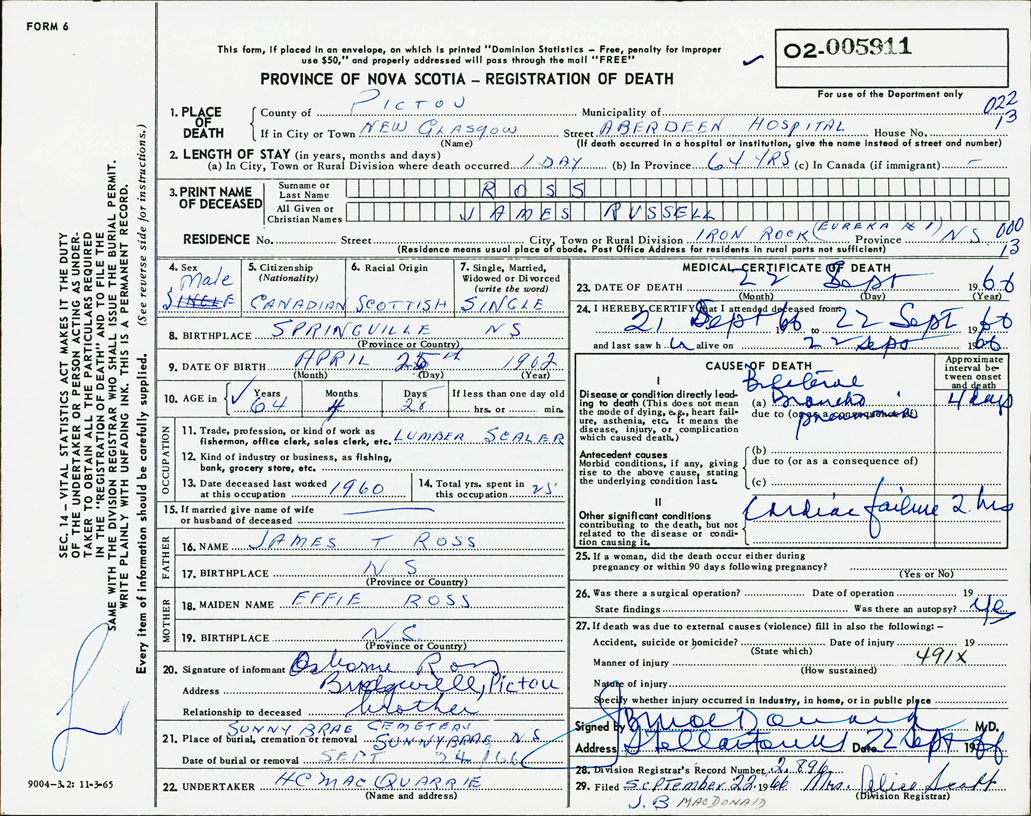 FORM 6
This form, if placed in an envelope, on which is printed "Dominion Statistics – Free, penalty for improper
use $50," and properly addressed will pass through the mail "FREE"
PROVINCE OF NOVA SCOTIA – REGISTRATION OF DEATH
02-005911
For use of the Department only
022
13
1. PLACE OF DEATH
County of PICTOU Municipality of
If in City or Town NEW GLASGOW Street ABERDEEN HOSPITAL House No.
(Name) (If death occurred in a hospital or institution, give the name instead of street and number)
2. LENGTH OF STAY (in years, months and days)
(a) In City, Town or Rural Division where death occurred 1 DAY (b) In Province 64 YRS (c) In Canada (if immigrant) –
3. PRINT NAME OF DECEASED
Surname or Last Name ROSS
All Given or Christian Names JAMES RUSSELL
RESIDENCE No. Street City, Town or Rural Division IRON ROCK (EUREKA # 1) Province NS
000
13
(Residence means usual place of abode. Post Office Address for residents in rural parts not sufficient)
4. Sex Male SINGLE
5. Citizenship (Nationality) CANADIAN
6. Racial Origin SCOTTISH
7. Single, Married, Widowed or Divorced (write the word) SINGLE
8. BIRTHPLACE SPRINGVILLE NS
(Province or Country)
9. DATE OF BIRTH APRIL 25th 1902
(Month) (Day) (Year)
10. AGE in Years Months Days If less than one day old
64 4 28 hrs. or min.
OCCUPATION
11. Trade, profession, or kind of work as
fisherman, office clerk, sales clerk, etc. LUMBER SCALER
12. Kind of industry or business, as fishing,
bank, grocery store, etc.
13. Date deceased last worked at this occupation 1960
14. Total yrs. spent in this occupation 25
15. If married give name of wife
or husband of deceased
FATHER
16. NAME JAMES T ROSS
17. BIRTHPLACE NS
(Province or Country)
MOTHER
18. MAIDEN NAME EFFIE ROSS
19. BIRTHPLACE N.S.
(Province or Country)
20. Signature of informant Osborne Ross
Address Bridgeville, Pictou
Relationship to deceased brother
SUNNY BRAE CEMETERY
21. Place of burial, cremation or removal SUNNYBRAE N.S.
Date of burial or removal SEPT 24 /66
22. UNDERTAKER H C MACQUARRIE
(Name and address)
MEDICAL CERTIFICATE OF DEATH
23. DATE OF DEATH 22 Sept 1966
(Month) (Day) (Year)
24. I HEREBY CERTIFY that I attended deceased from
21 Sept 66 to 22 Sept 1966
and last saw h alive on 22 sept 1966
CAUSE OF DEATH
Approximate interval between onset and death
I
Disease or condition directly leading to death (This does not mean the mode of dying, e.g., heart failure, asthenia, etc. It means the disease, injury, or complication which caused death.)
(a) Bilateral Broncho pneumonia 4 days
due to (or as a consequence of)
Antecedent causes
Morbid conditions, if any, giving rise to the above cause, stating the underlying condition last.
(b)
due to (or as a consequence of)
(c)
II
Other significant conditions contributing to the death, but not related to the disease or condition causing it.
Cardiac failure 2 hrs
25. If a woman, did the death occur either during
pregnancy or within 90 days following pregnancy?
(Yes or No)
26. Was there a surgical operation? Date of operation 19
State findings Was there an autopsy? yes
27. If death was due to external causes (violence) fill in also the following:–
Accident, suicide or homicide? Date of injury 19
(State which)
491X
Manner of injury
(How sustained)
Nature of injury
Specify whether injury occurred in Industry, in home, or in public place
Signed by M.D.
Address Stellarton NS Date 22 Sept 1966
28. Division Registrar's Record Number 2896
29. Filed SEPTEMBER 22 1966 Mrs. Alice Scott
(Division Registrar)
J. B MACDONALD
SEC. 14 – VITAL STATISTICS ACT MAKES IT THE DUTY
OF THE UNDERTAKER OR PERSON ACTING AS UNDER-
TAKER TO OBTAIN ALL THE PARTICULARS REQUIRED
IN THE "REGISTRATION OF DEATH" AND TO FILE THE
SAME WITH THE DIVISION REGISTRAR WHO SHALL ISSUE THE BURIAL PERMIT.
WRITE PLAINLY WITH UNFADING INK. THIS IS A PERMANENT RECORD.
Every item of information should be carefully supplied. (See reverse side for instructions.)
9004-3.2: 11-3-65